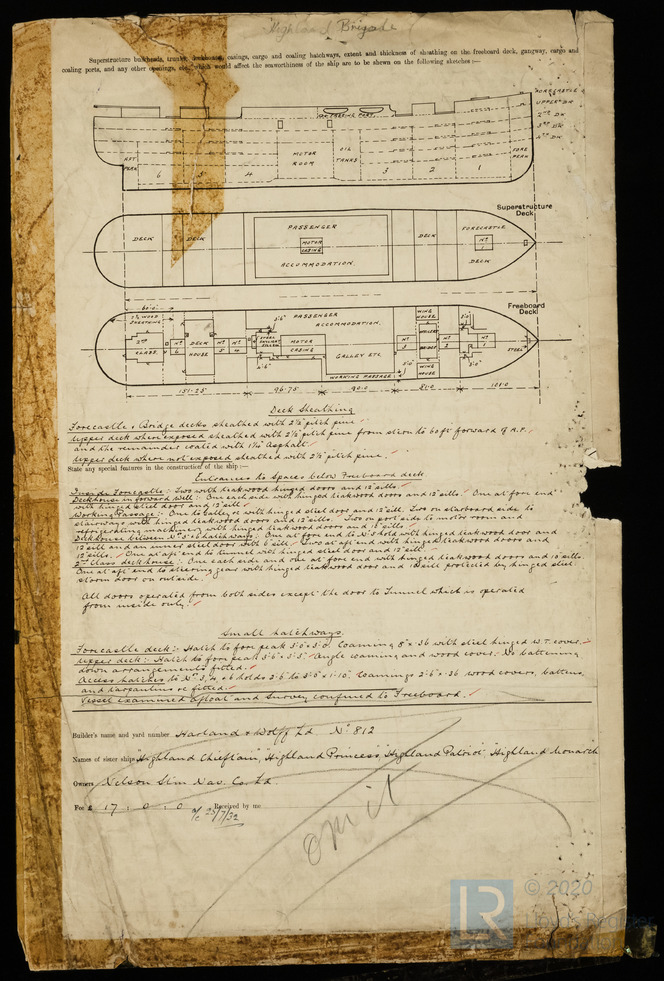 Highland Brigade
Superstructure bulkheads, trunks, deckhouses, casings, cargo and coaling hatchways, extent and thickness of sheathing on the freeboard deck, gangway, cargo and
coaling ports, and any other openings, etc., which would affect the seaworthiness of the ship are to be shewn on the following sketches:—
FORECASTLE
UPPER DK
2ND DK
3RD DK
4TH DK
AFT PEAK
6
5
4
MOTOR ROOM
OIL TANKS
3
2
1
FORE PEAK
Superstructure Deck
DECK
DECK
PASSENGER
MOTOR CASING
ACCOMMODATION.
DECK
FORECASTLE
No 1
DECK
Freeboard Deck
60'0"
2½ WOOD SHEATHING
2ND CLASS
No 6
DECK HOUSE
No 5
No 4
PASSENGER
ACCOMMODATION.
MOTOR CASING
GALLEY ETC
WORKING PASSAGE
WING HOUSE
No 3
No 2
WING HOUSE
No 1
STEEL
151.25'
96.75
90.0
81.0
101.0
Deck Sheathing
Forecastle & Bridge decks sheathed with 2½" pitch pine
Upper deck where exposed sheathed with 2½" pitch pine from stern to 60ft forward of A.P.,
and the remainder coated with Asphalt.
Upper deck where not exposed sheathed with 2½" pitch pine.
State any special features in the construction of the ship:—
Entrances to Spaces below Freeboard deck
Inside Forecastle:- Two with teakwood hinged doors and 12" sills.
Deckhouse in forward well:- One each side with hinged teakwood doors and 12" sills. One at fore end
with hinged steel door and 12" sill
Working Passage:- One to Galley with hinged steel door and 12" sill. Two on starboard side to
stairways with hinged teakwood doors and 12" sills. Two on port side to motor room and
refrigerating machinery with hinged teakwood doors and 18" sills
Deckhouse between Nos 5 & 6 hatchways:- One at fore end to No 5 hold with hinged teakwood door and
12" sill and an inner steel door with 6" sill. Two at aft end with hinged teakwood doors and
12" sills. One at aft end to tunnel with hinged steel door and 12" sill.
2nd Class deckhouse:- One each side and one at fore end with hinged teakwood doors and 12" sills.
One at aft end to steering gear with hinged teakwood door and sill protected by hinged steel
storm door on outside.
All doors operated from both sides except the door to Tunnel which is operated
from inside only.
Small hatchways.
Forecastle deck:- Hatch to fore peak 3'0" x 3'0". Coaming 8" x .36 with steel hinged W.T. cover.
Upper deck:- Hatch to fore peak Angle coaming and wood cover. No battening
down arrangements fitted.
Access hatches to Nos 3, 4 & 6 holds Coamings 2'6" x .36 wood covers, battens,
and tarpaulins fitted.
Vessel examined afloat and Survey confined to Freeboard.
Builder's name and yard number Harland & Wolff Ltd No 812
Names of sister ships "Highland Chieftain", "Highland Princess", "Highland Patriot", Highland Monarch
Owners Nelson Stm Nav. Co. Ld
Fee £ 17 : 0 : 0 Received by me
23/7/32
omit
LR
© 2020
Lloyd's Register